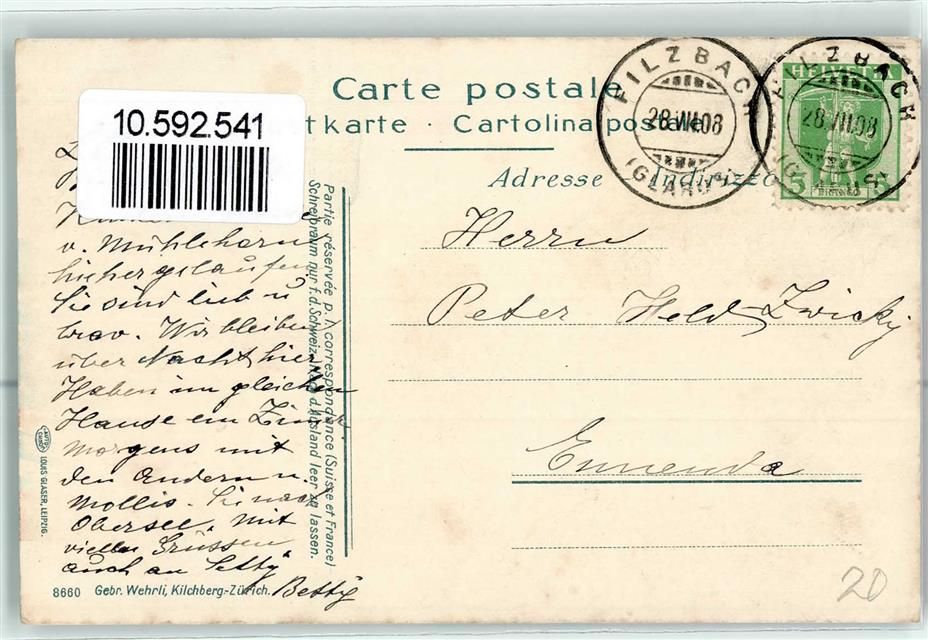 Carte postale
tkarte · Cartolina postale
Adresse Indirizzo
10.592.541
FILZBACH
28.VII.08
(GLARUS)
FILZBACH
28.VII.08
HELVETIA
5 5
Partie réservée p. l. correspondance (Suisse et France)
Schreibraum nur f. d. Schweiz, nach d. Ausland leer zu lassen.
v. Mühlehorn
hieher gelaufen
Sie sind lieb u
brav. Wir bleiben
über Nacht hier
Haben im gleichen
Hause ein Zimer.
morgens mit
den Andern n.
Mollis. Sie nach
Obersee. Mit
vielen Grüssen
auch an Setty
Betty
Herrn
Peter Held Zwicky
Ennenda
LOUIS GLASER, LEIPZIG.
8660 Gebr. Wehrli, Kilchberg-Zürich.
20